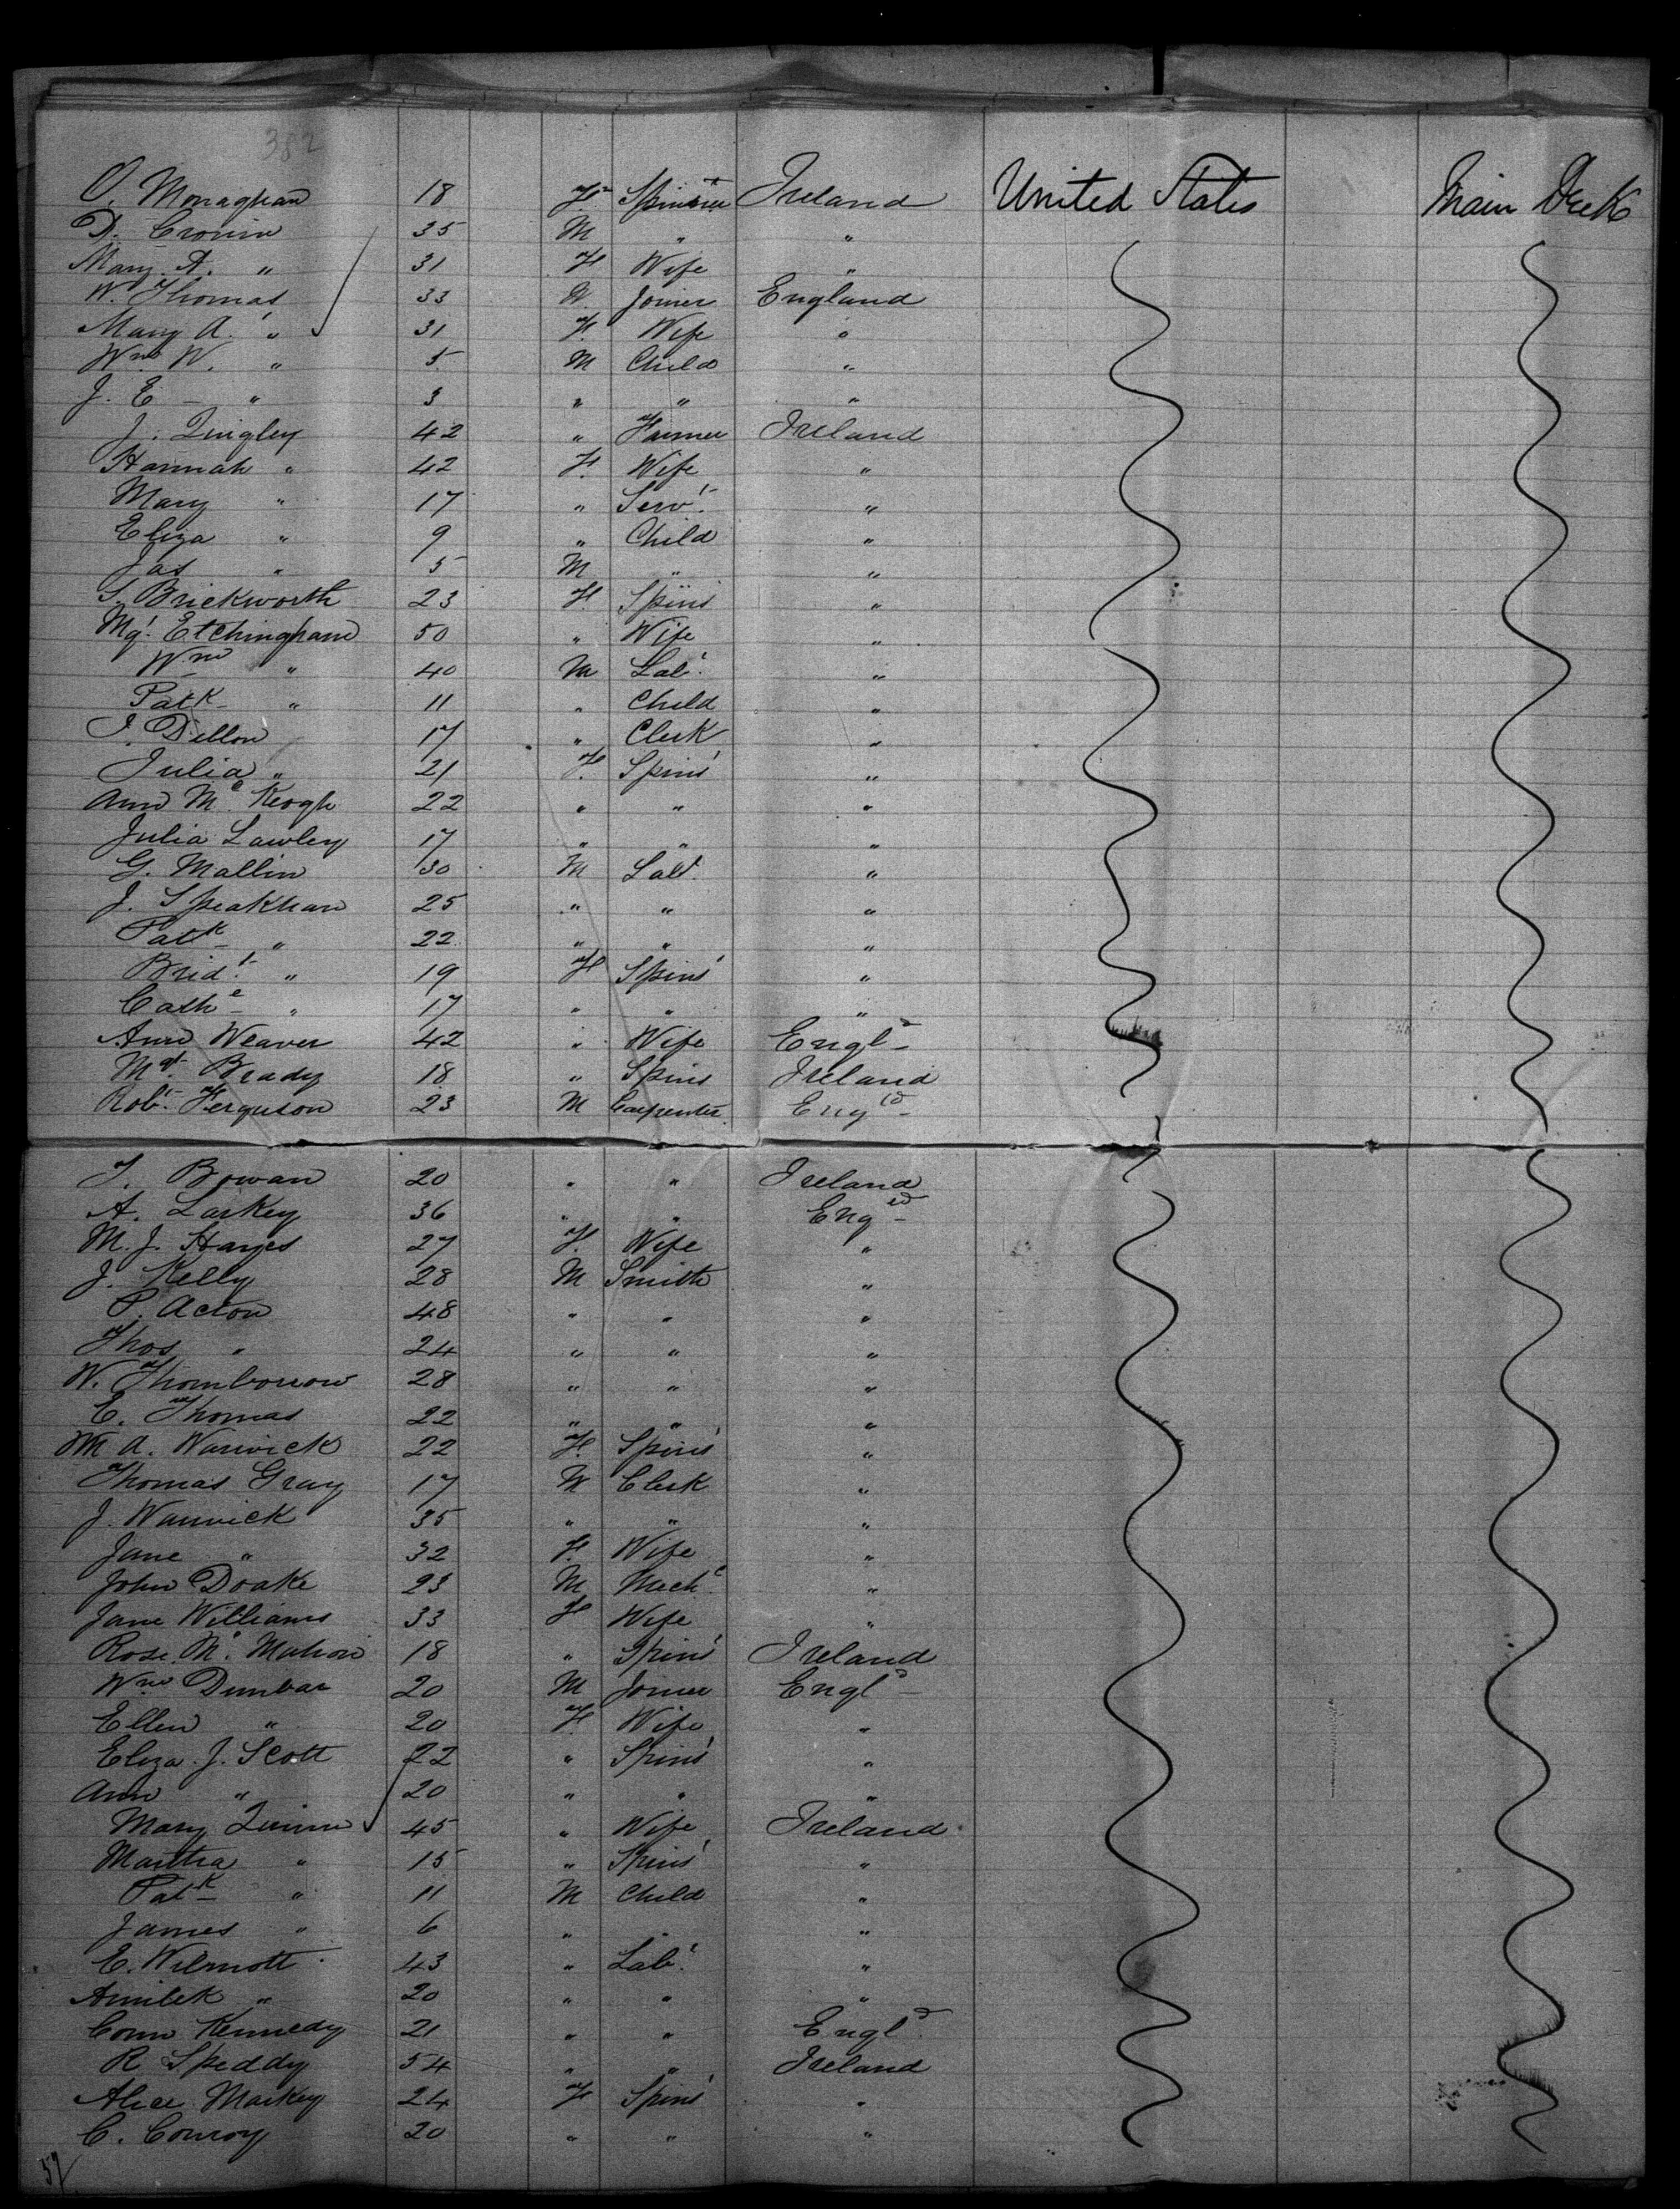 382
O. Monaghan 18 F Spinster Ireland United States Main Deck
D. Cronin 35 M " "
Mary A. " 31 F Wife "
W. Thomas 33 M Joiner England
Mary A. " 31 F. Wife "
Wm W. " 5 M Child "
J. E - " 3 " " "
J. Tingley 42 " Farmer Ireland
Hannah " 42 F. Wife "
Mary " 17 " Servt. "
Eliza " 9 " Child "
Jas " 5 M " "
S. Brickworth 23 F. Spins "
Mgt. Etchingham 50 " Wife "
Wm " 40 M Labr. "
Patk " 11 " Child "
J. Dillon 17 " Clerk "
Julia " 21 F. Spins "
Ann Mc Keogh 22 " " "
Julia Lawley 17 " " "
G. Mallin 30 M Labr. "
J. Speakman 25 " " "
Patk " 22 " " "
Bridt. " 19 F Spins "
Cathe " 17 " " "
Ann Weaver 42 " Wife Engld
Mgt. Brady 18 " Spins Ireland
Robt. Ferguson 23 M Carpenter Engld
T. Bowan 20 " " Ireland
A. Larkey 36 " " Engld
M. J. Hayes 27 F. Wife "
J. Kelly 28 M Smith "
P. Acton 48 " " "
Thos " 24 " " "
W. Thomborrow 28 " " "
E. Thomas 22 " " "
M A. Warwick 22 F. Spins "
Thomas Gray 17 M Clerk "
J. Warwick 35 " " "
Jane " 32 F. Wife "
John Doake 23 M Mechc. "
Jane Williams 33 F Wife "
Rose Mc. Mahon 18 " Spins Ireland
Wm Dunbar 20 M Joiner Engld
Ellen " 20 F. Wife "
Eliza J. Scott 22 " Spins "
Ann " 20 " " "
Mary Quinn 45 " Wife Ireland
Martha " 15 " Spins "
Patk " 11 M Child "
James " 6 " " "
E. Wilmott 43 " Labr. "
20 " " "
Conn Kennedy 21 " " Engld.
R Speddy 54 " " Ireland
Alice Markey 24 F Spins "
C. Conroy 20 " " "
57